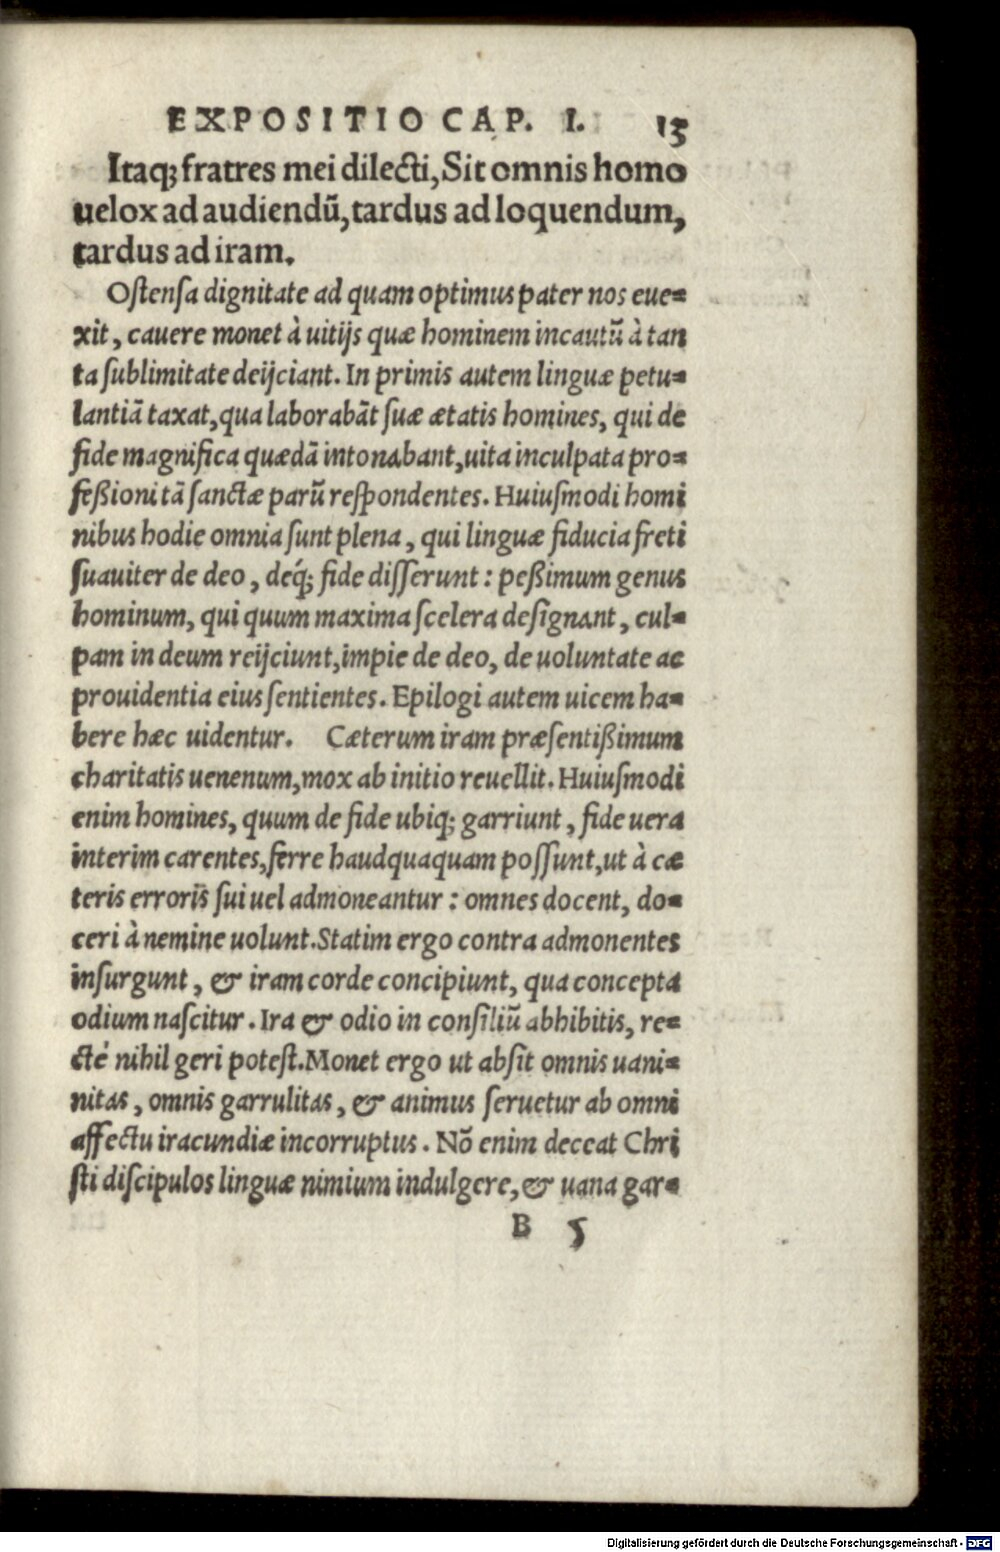 EXPOSITIO CAP. I. 13
Itaq; fratres mei dilecti, Sit omnis homo
uelox ad audiendũ, tardus ad loquendum,
tardus ad iram.
Ostensa dignitate ad quam optimus pater nos eue=
xit, cauere monet à uitijs quæ hominem incautũ à tan
ta sublimitate deijciant. In primis autem linguæ petu=
lantiã taxat, qua laborabãt suæ ætatis homines, qui de
fide magnifica quædã intonabant, uita inculpata pro=
feßioni tã sanctæ parũ respondentes. Huiusmodi homi
nibus hodie omnia sunt plena, qui linguæ fiducia freti
suauiter de deo, deq́; fide disserunt: peßimum genus
hominum, qui quum maxima scelera designant, cul=
pam in deum reijciunt, impie de deo, de uoluntate ac
prouidentia eius sentientes. Epilogi autem uicem ha=
bere hæc uidentur. Cæterum iram præsentißimum
charitatis uenenum, mox ab initio reuellit. Huiusmodi
enim homines, quum de fide ubiq; garriunt, fide uera
interim carentes, ferre haudquaquam possunt, ut à cæ
teris erroris sui uel admoneantur: omnes docent, do=
ceri à nemine uolunt. Statim ergo contra admonentes
insurgunt, & iram corde concipiunt, qua concepta
odium nascitur. Ira & odio in consiliũ abhibitis, re=
ctè nihil geri potest. Monet ergo ut absit omnis uani=
nitas, omnis garrulitas, & animus seruetur ab omni
affectu iracundiæ incorruptus. Nõ enim deceat Chri
sti discipulos linguæ nimium indulgere, & uana gar=
B 5
Digitalisierung gefördert durch die Deutsche Forschungsgemeinschaft - DFG